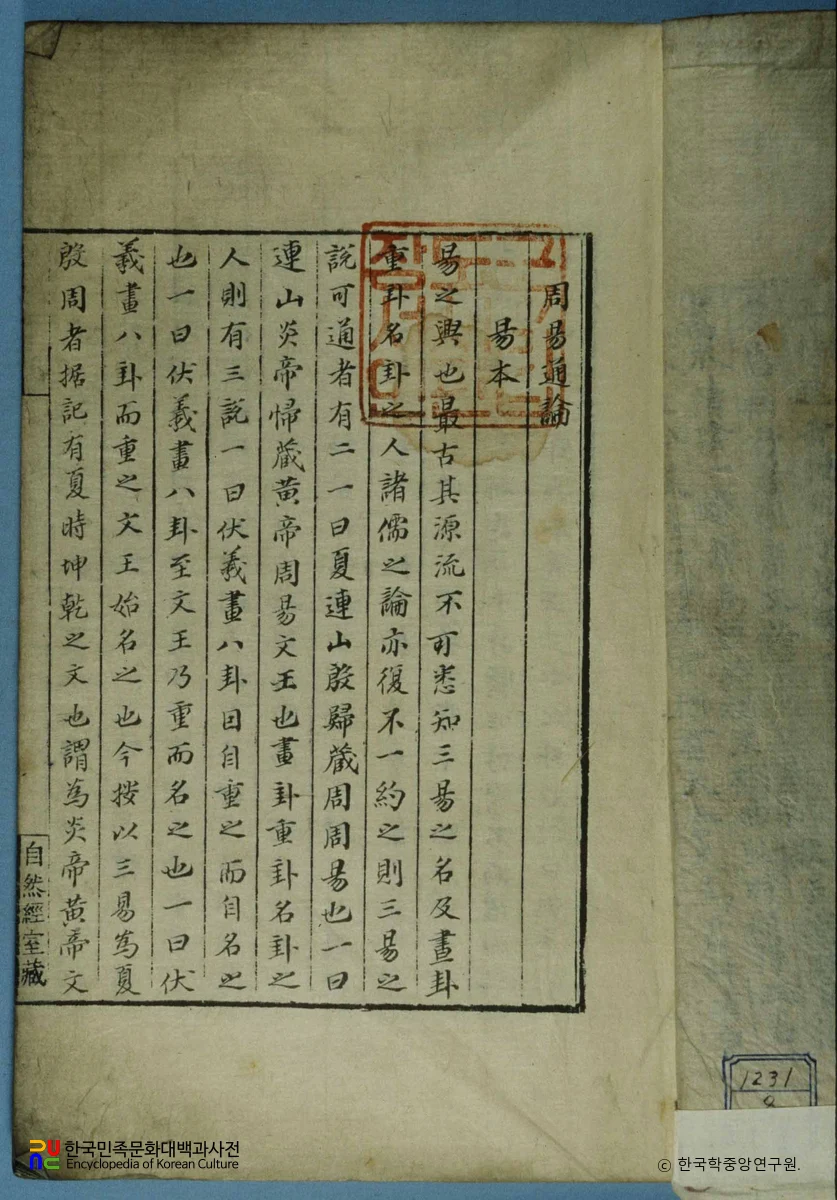 周易通論
易本
易之興也最古其源流不可悉知三易之名及畫卦
重卦名卦之人諸儒之論亦復不一約之則三易之
說可通者有二一曰夏連山殷歸藏周周易也一曰
連山炎帝㱕藏黃帝周易文王也畫卦重卦名卦之
人則有三說一曰伏羲畫八卦因自重之而自名之
也一曰伏羲畫八卦至文王乃重而名之也一曰伏
羲畫八卦而重之文王始名之也今按以三易為夏
殷周者据記有夏時坤乾之文也謂為炎帝黃帝文
自然經室藏
1231
한국민족문화대백과사전
Encyclopedia of Korean Culture
© 한국학중앙연구원.